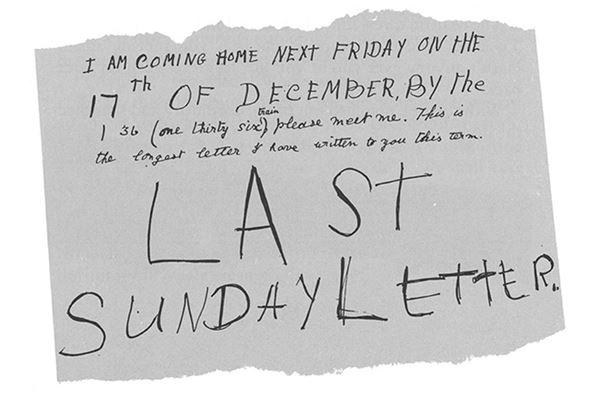 I AM COMING HOME NEXT FRIDAY ON THE
17th OF DECEMBER, BY the
train
1 36 (one thirty six) please meet me. This is
the longest letter I have written to you this term.
LAST
SUNDAY LETTER.